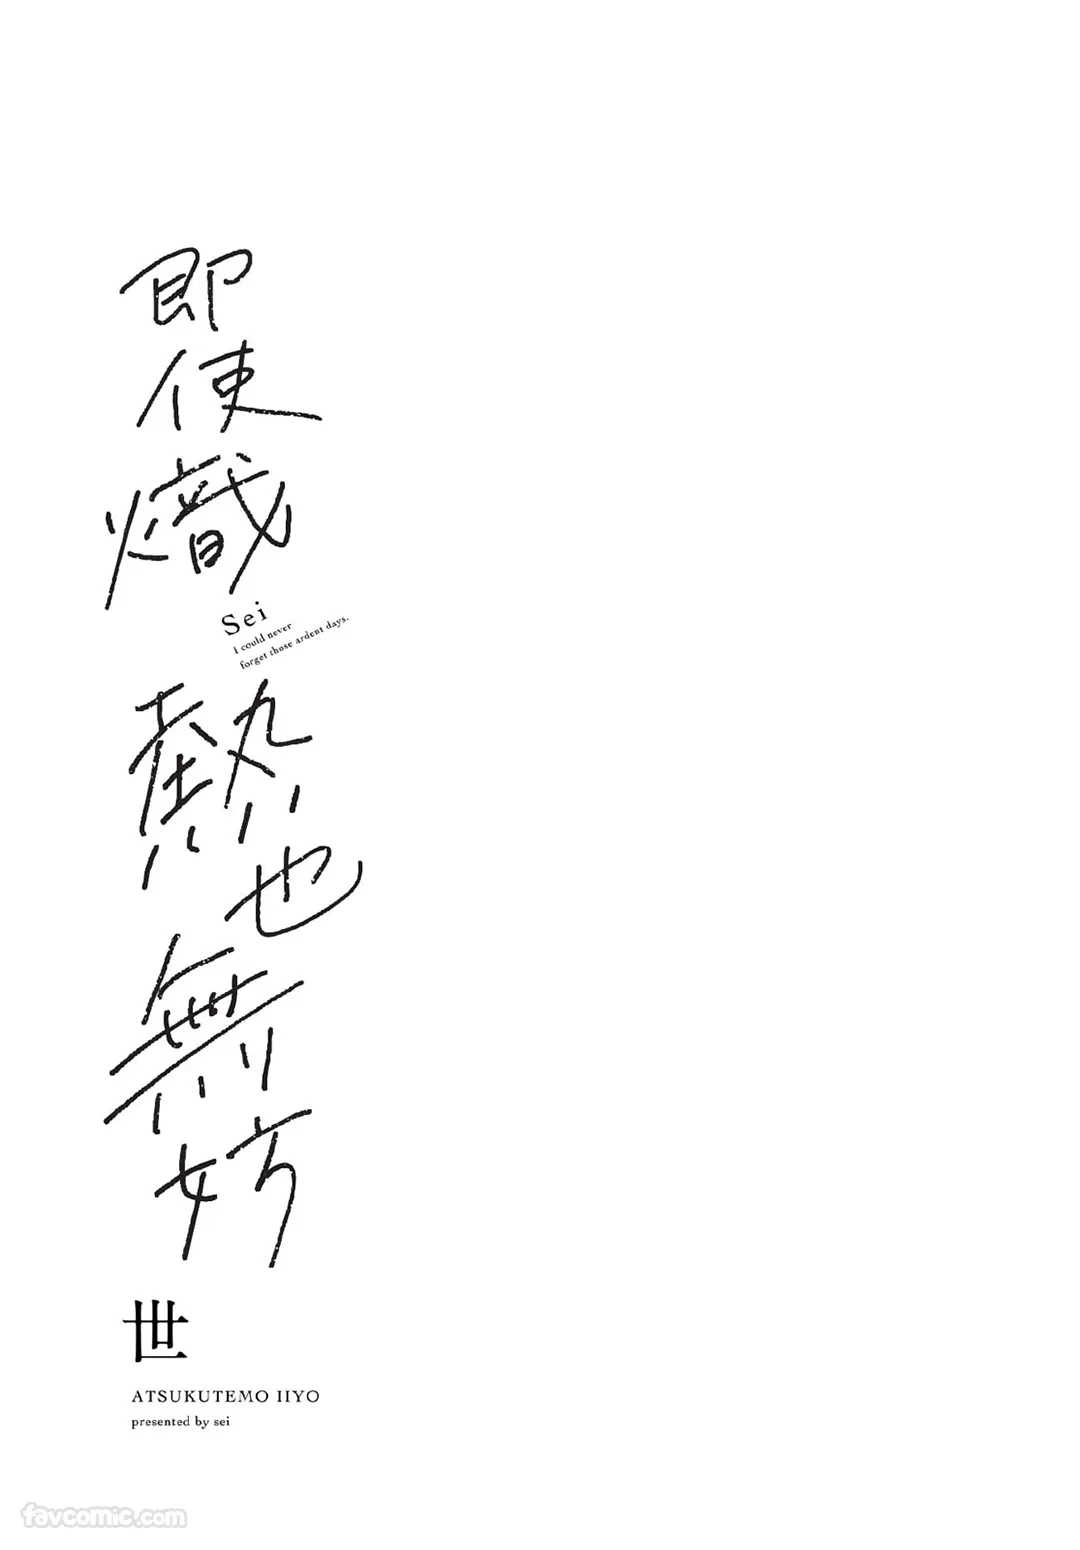 即使熾
熱也無妨
Sei
I could never
forget those ardent days.
世
ATSUKUTEMO IIYO
presented by sei
favcomic.com